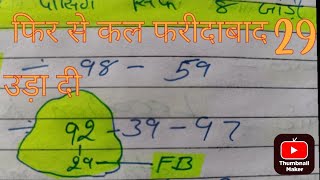 पासिंग सिर्फ 8 जोड़ी
फिर से कल फरीदाबाद 29
÷ 98 - 59
उड़ा दी
÷ 92 - 39 - 97
29 — FB
Thumbnail
Maker